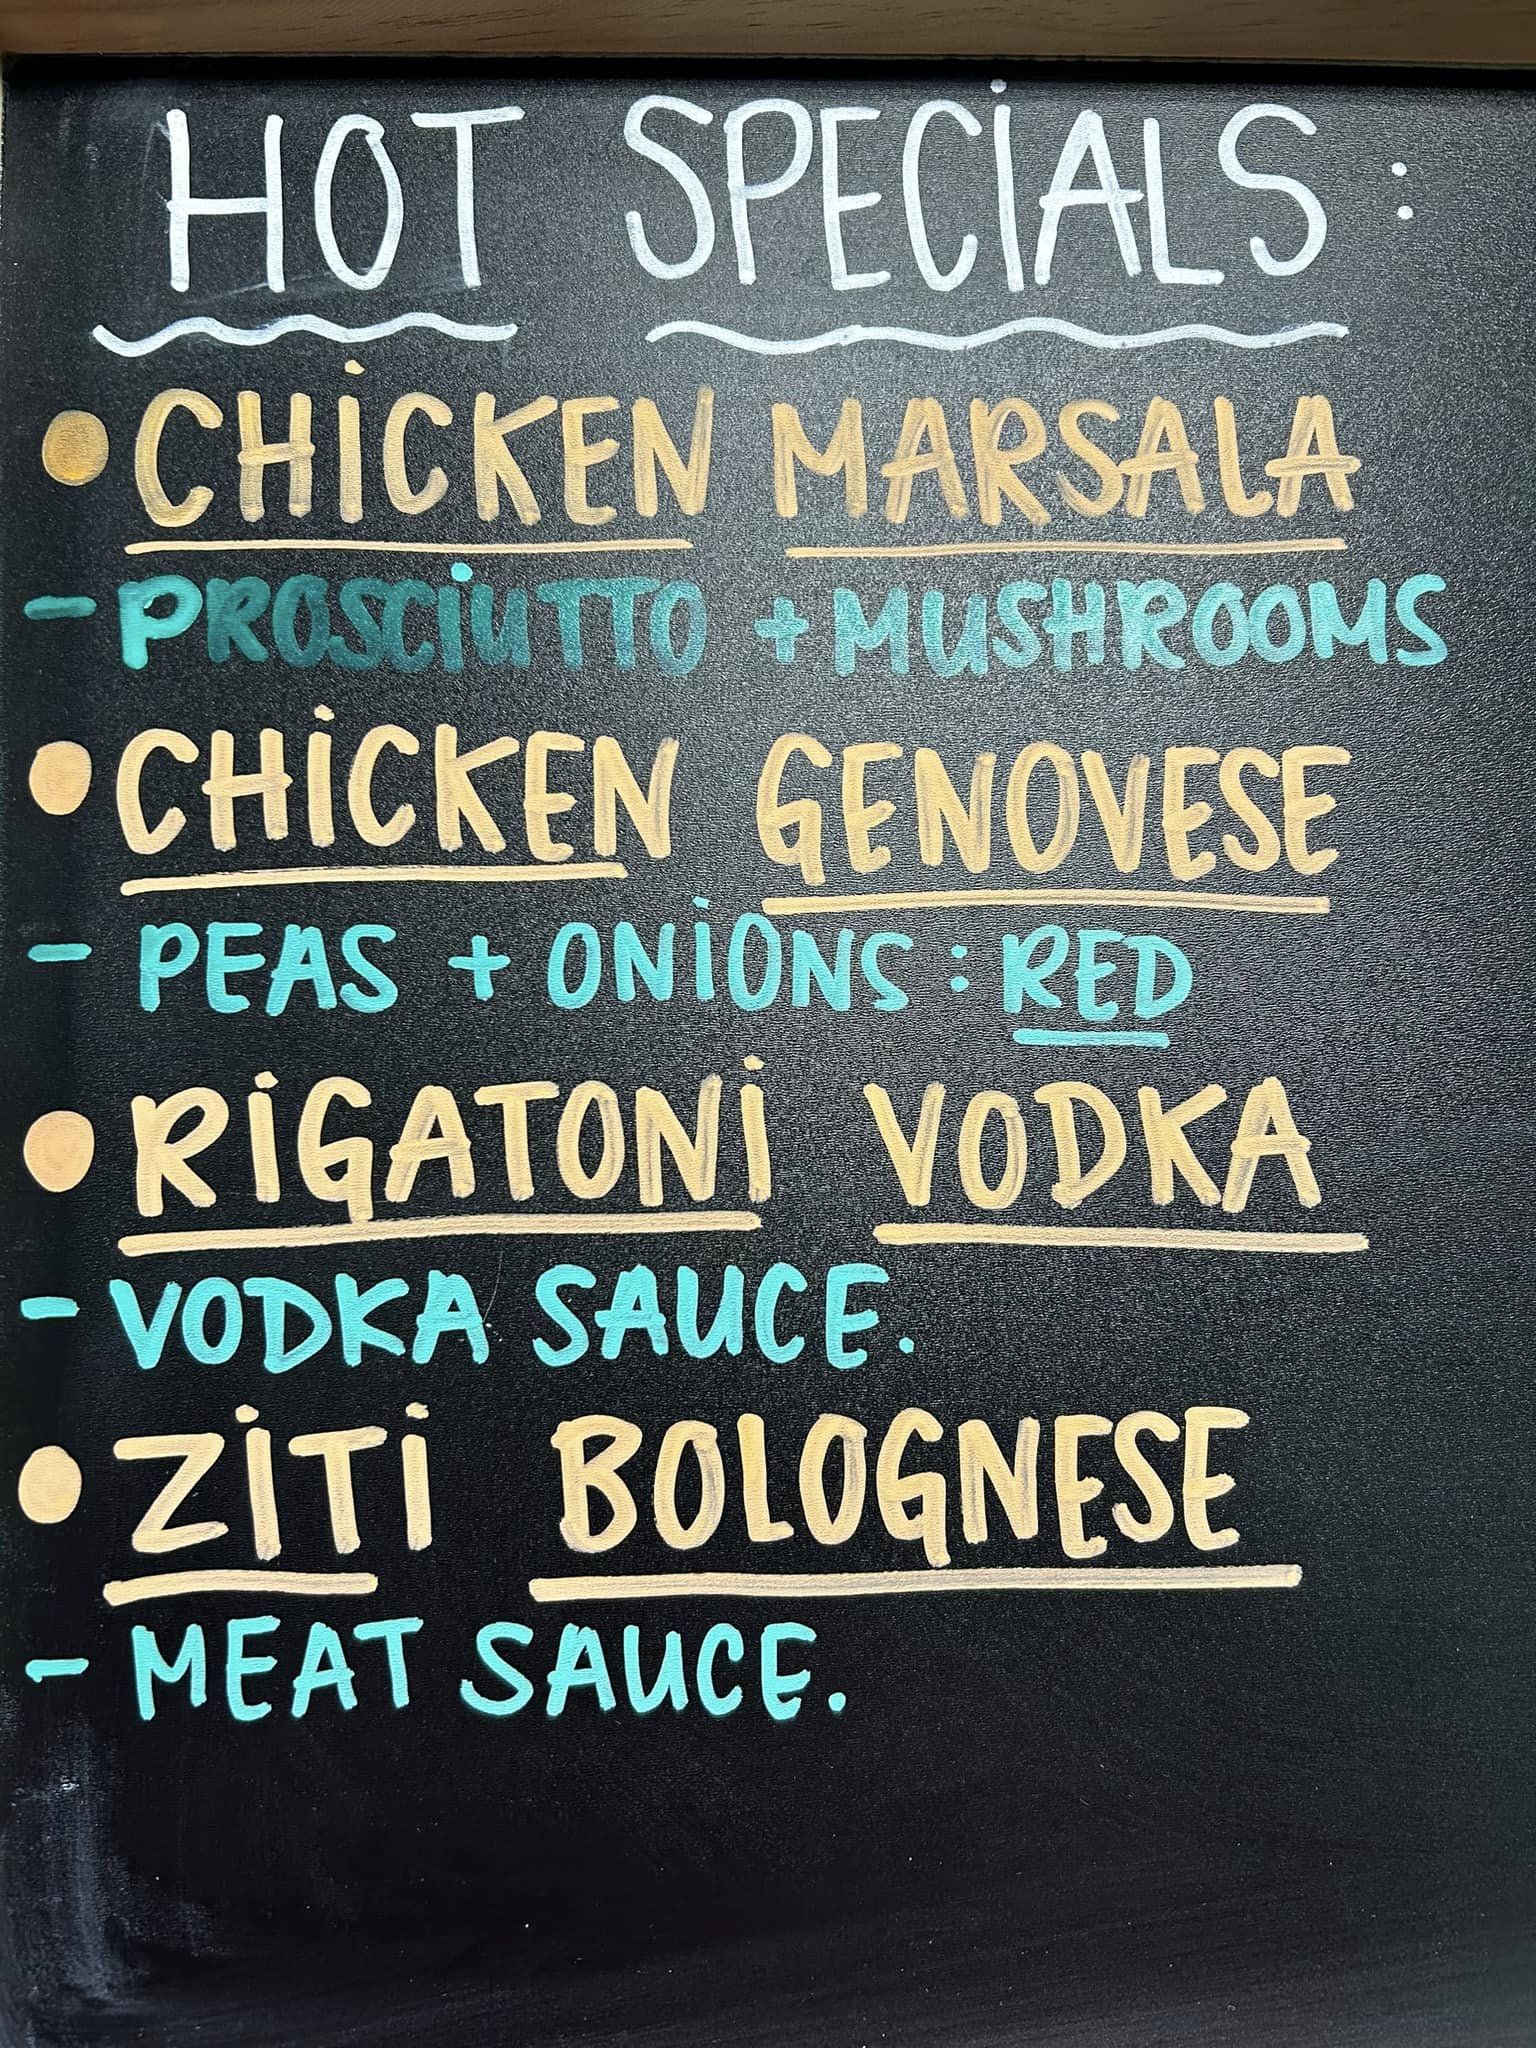 HOT SPECIALS:
• CHICKEN MARSALA
- PROSCIUTTO + MUSHROOMS
• CHICKEN GENOVESE
- PEAS + ONIONS : RED
• RIGATONI VODKA
- VODKA SAUCE.
• ZITI BOLOGNESE
- MEAT SAUCE.